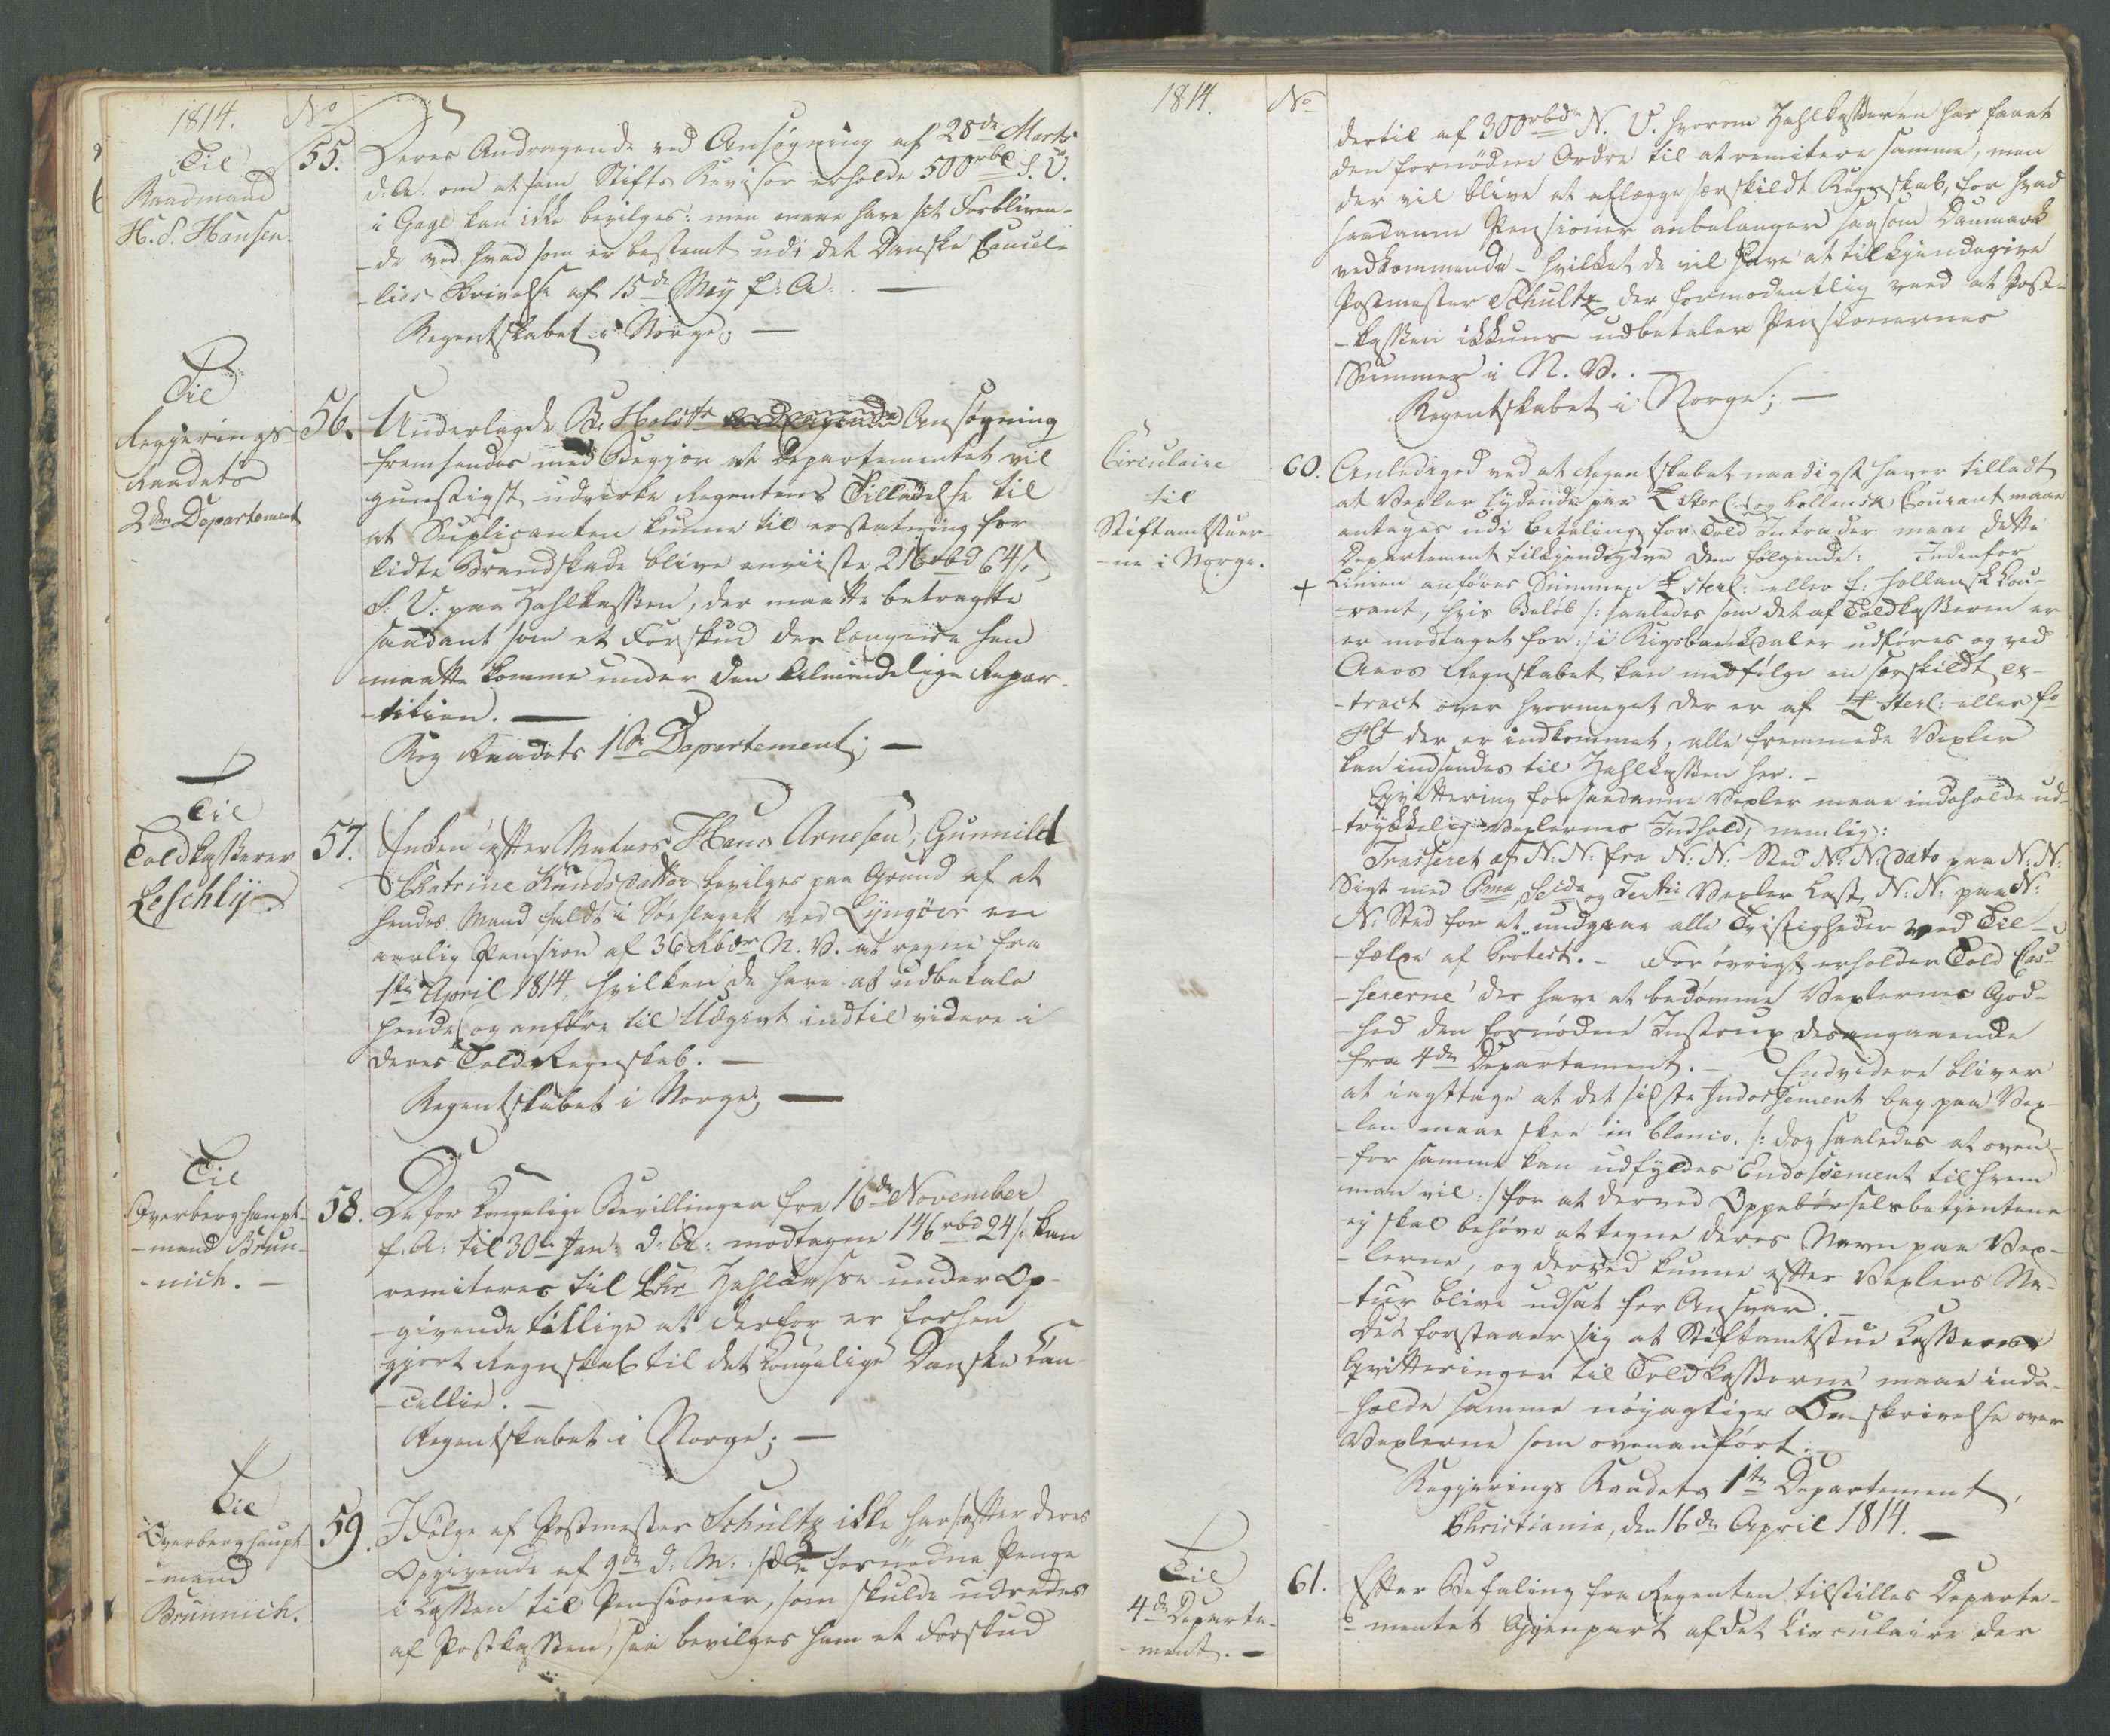 1814. No
Til
Raadmand
H. S. Hansen.
55. Deres Andragende ved Ansøgning af 28de Marts
d. A. om at som Stifts Revisor erholde 500 rbd S. V.
i Gage kan ikke bevilges: men maae have sit Forbliven-
-de ved hvad som er bestemt udi det Danske Cancel-
-lies Skrivelse af 15de May f: A: —
Regentskabet i Norge; —
Til
Regjerings
Raadets
2det Departement
56. Underlagde B. Holst Ansøgning
fremsendes med Begjær at Departementet vil
gunstigst udvirke Regentens Tilladelse til
at Suplicanten kunne til erstatning for
lidte Brandskade blive anviiste 216 rbd 64 s.
S: V: paa Zahlkassen, der maatte betragte
saadant som et Forskud der længere hen
maatte komme under den Almindelige Repar-
-tition. —
Reg Raadets 1ste Departement; —
Til
Toldkasserer
Leschly
57. Enken efter Matros Hans Arnesen, Gunnild
Catrine Knudsdatter bevilges paa Grund af at
hendes Mand faldt i Søeslaget ved Lyngöer en
aarlig Pension af 36 Rbdr N. V. at regne fra
1ste April 1814 hvilken de have at udbetale
hende og anføre til Udgivt indtil videre i
deres Told Regnskab. —
Regentskabet i Norge; —
Til
Overberghaupt-
-mand Brün-
-nich. —
58. De for Kongelige Bevillinger fra 16de November
f. A: til 30te Jan: d: A: modtagne 146 rbd 24 s. kan
remiteres til Zahlkasse under Op-
-givende tillige at derfor er forhen
gjort Regnskab til det Kongelige Danske Can-
-cellie. —
Regentskabet i Norge; —
Til
Overberghaupt-
-mand
Brünnich.
59. I Følge af Postmester Schultz ikke har efter deres
Opgivende af 9de d: M: fornødne Penge
i Cassen til Pensioner, som skulde udredes
af Postkassen, saa bevilges ham et Forskud
1814. No
dertil af 300 rbdr N. V. hvorom Zahlkasseren har faaet
den fornødne Ordre til at remitere samme, men
der vil blive at aflægge særskildt Regnskab, for hvad
saadanne Pensioner anbelanger saasom Danmark
vedkommende - hvilket de vil have at tilkjendegive
Postmester Schultz der formodentlig veed at Post-
-kassen ikkuns udbetaler Pensionernes
Summer i N. V. —
Regentskabet i Norge; —
Circulaire
til
Stiftamtstuer-
-ne i Norge.
60. Anlediged ved at Regentskabet naadigst haver tilladt
at Vexler lydende paa £ Sterl: og hollansk Courant maae
antages udi betaling for Told Intrader maae dette
Departement tilkjendegive dem følgende: Indenfor
+ Linien anføres Summen £ sterl: eller f: hollansk Cou-
-rant, hvis Beløb /: saaledes som det af Toldkasseren er
er modtaget for :/ i Rigsbankdaler udføres og ved
Aars Regnskabet kan medfølge en særskildt ex-
-tract over hvormeget der er af £ Sterl: eller fo
Ht der er indkommet, alle fremmede Vexler
kan indsendes til Zahlkassen her. —
Qvittering for saadanne Vexler maae indeholde ud-
-trykkelig Vexlernes Indhold, nemlig:
Trasseret af N: N: fra N: N: Sted N: N: dato paa N: N:
Sigt med Pma Scida og Tertia Vexler Last N: N: paa N:
N: Sted for at undgaae alle Tvistigheder ved Til-
-fælde af Protest. — For øvrigt erholder Told Cas-
-sererne der have at bedømme Vexlernes God-
-hed den fornødne Instrux desangaaende
fra 4de Departement. — Endvidere bliver
at iagttage at det sidste Indossement bag paa Vex-
-len maae skee in blanco. /: dog saaledes at oven-
-for samme kan udfyldes Endossement til hvem
man vil :/ for at derved Oppebørselsbetjentene
ej skal behøve at tegne deres Navn paa Vex-
-lerne, og derved kunne efter Vexlers Na-
-tur blive udsat for Ansvar. —
Det forstaaer sig at Stiftamtstue Casserernes
Qvitteringer til Toldkassererne maae inde-
-holde samme nøjagtige Omskrivelse over
Vexlerne som ovenanført. —
Regjerings Raadets 1ste Departement,
Christiania, den 16de April 1814. —
Til
4de Departe-
-ment. —
61. Efter Befaling fra Regenten tilstilles Departe-
-mentet Gjenpart af det Circulaire der